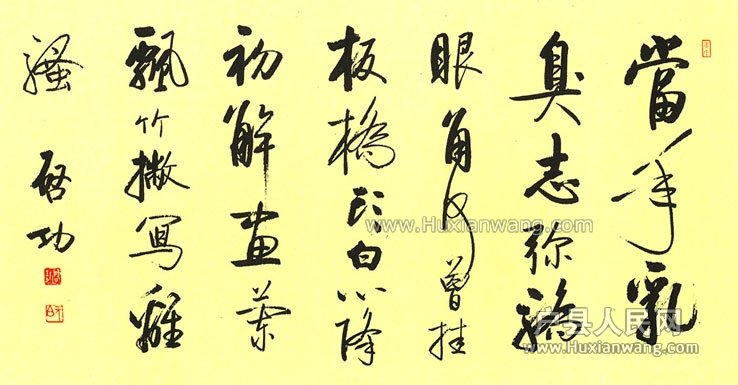 當年乳
臭志弥驕
眼角何曾挂
板橋頭白心降
初解畫蘭
飄竹撇寫離
騷 啓功
www.Huxianwang.com
户县人民网
Huxianwang.com